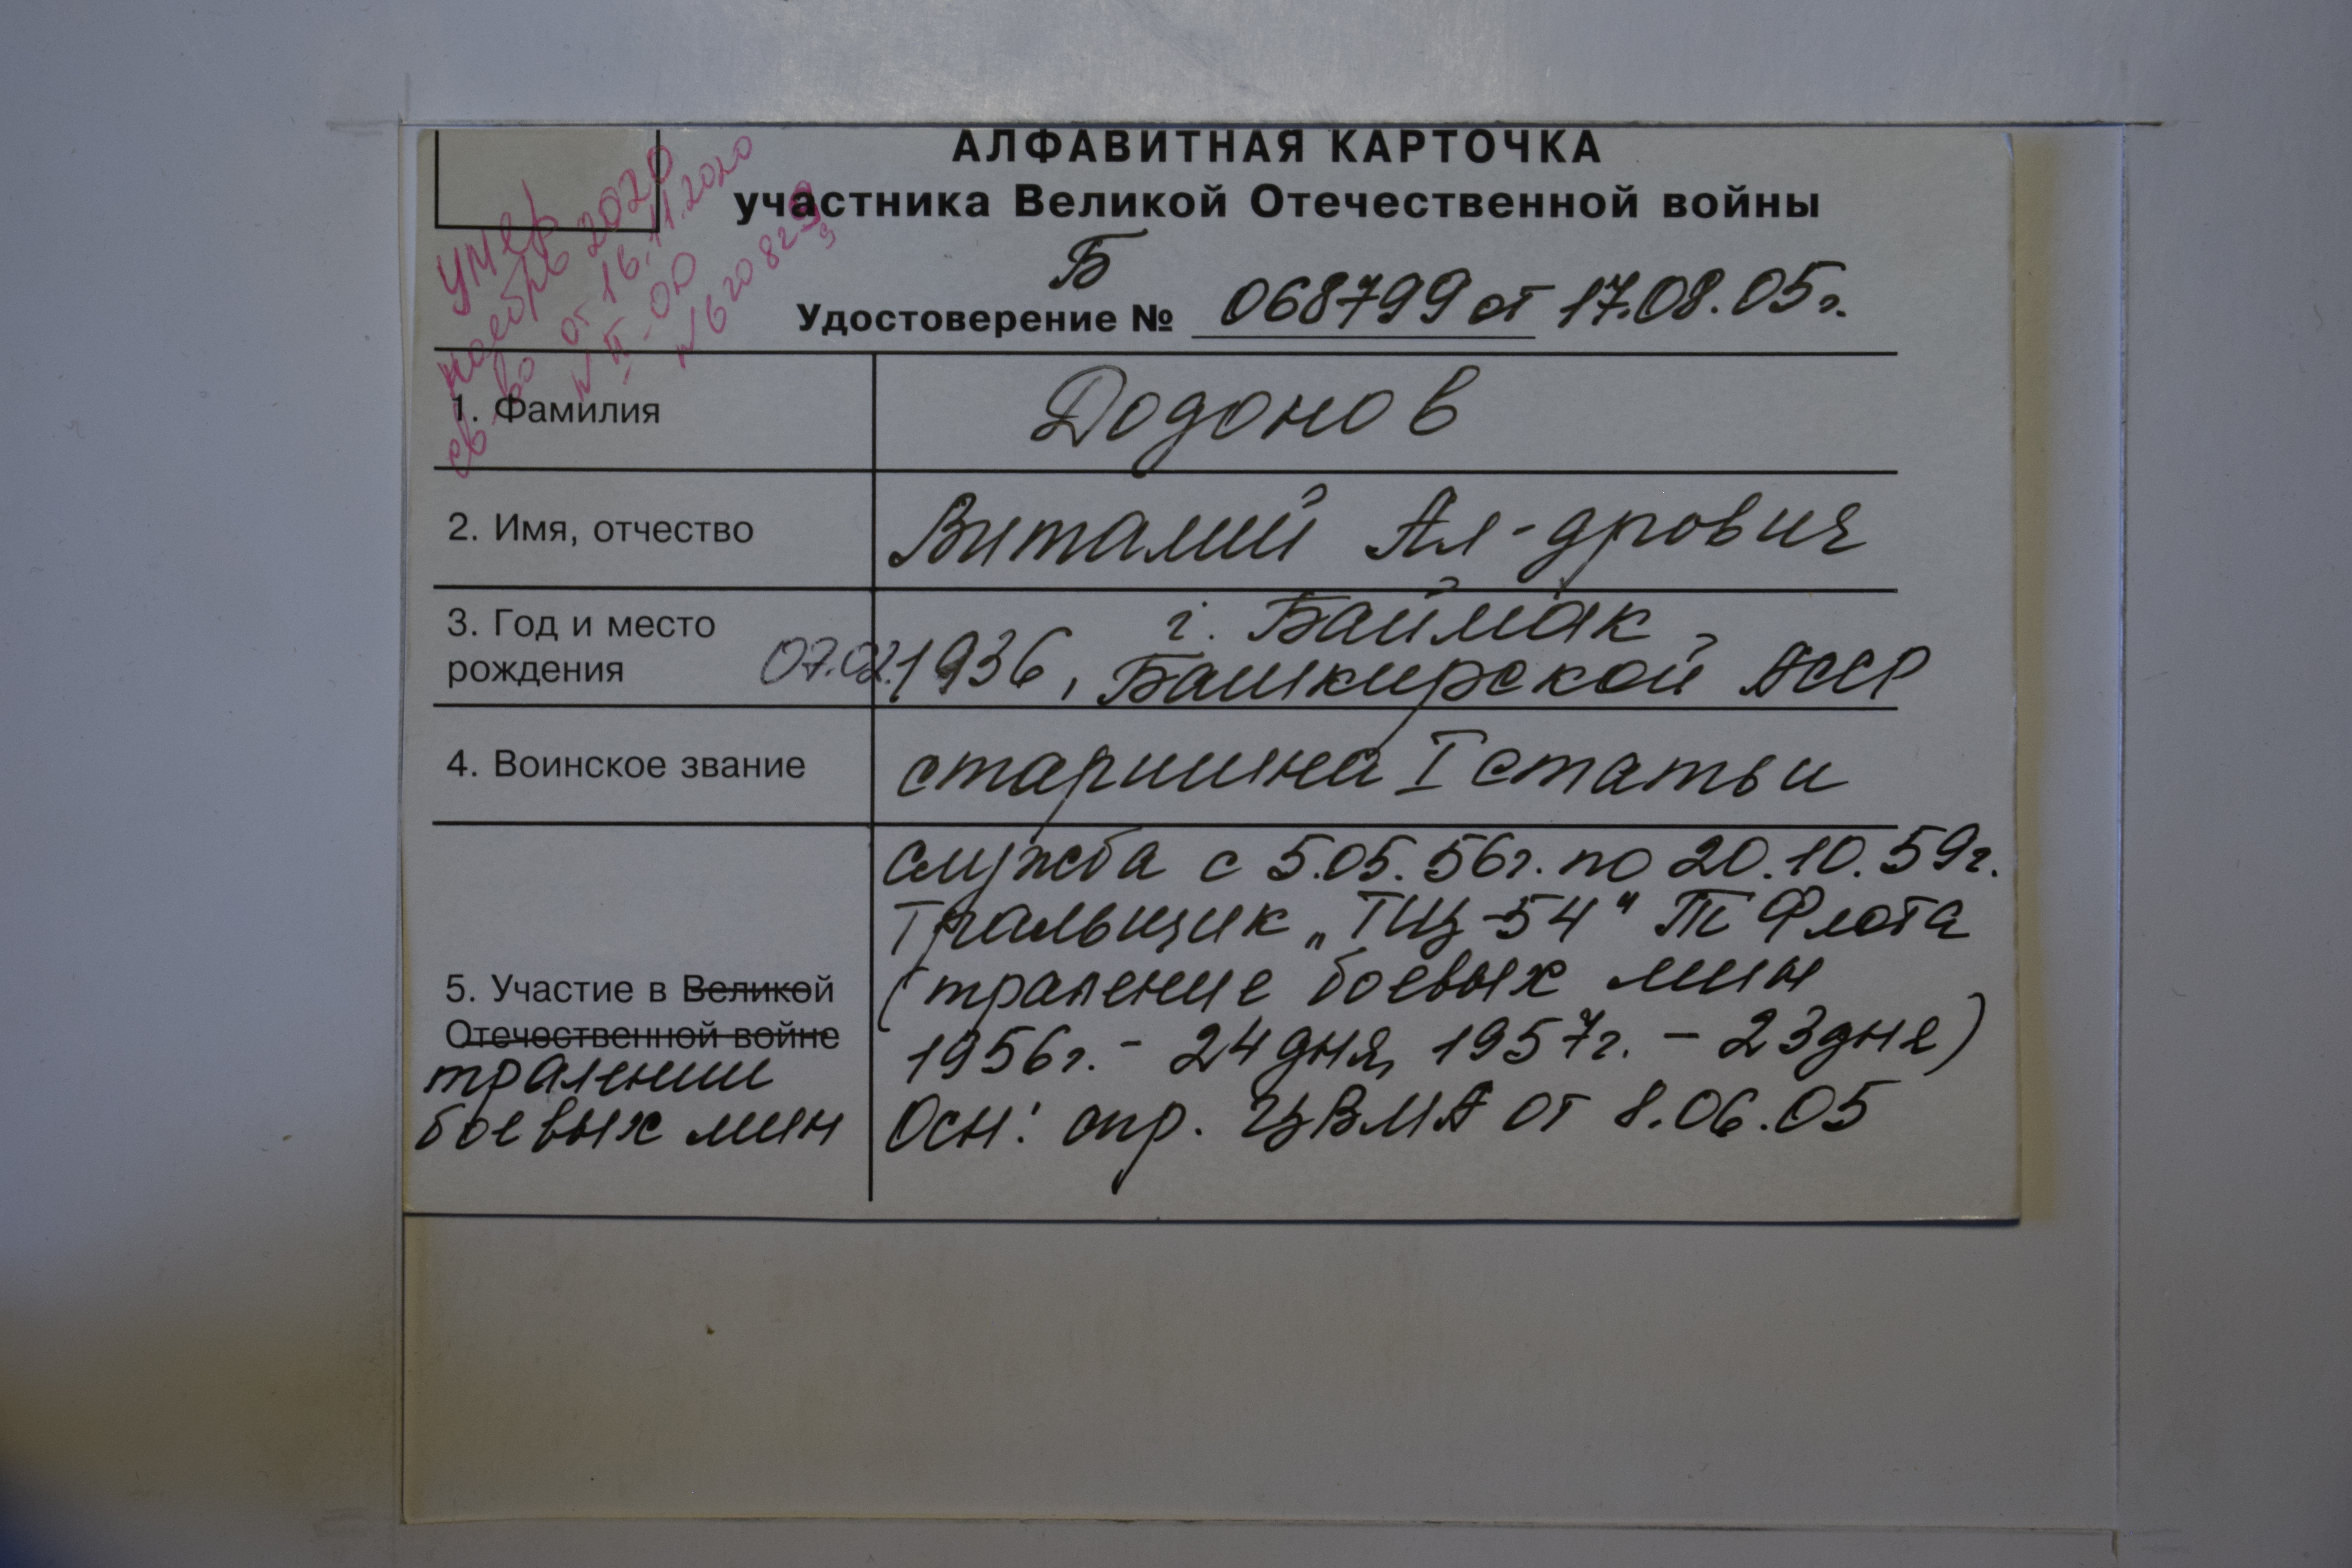 АЛФАВИТНАЯ КАРТОЧКА
участника Великой Отечественной войны
Б
Удостоверение № 068799 от 17.08.05г.
умер
ноябрь 2020
св-во от 16.11.2020
1. Фамилия Додонов
2. Имя, отчество Виталий Ал-дрович
3. Год и место г. Баймак
рождения 07.02.1936, Башкирской АССР
4. Воинское звание старшина I статьи
служба с 5.05.56г. по 20.10.59г.
Тральщик „ТЩ-54" ТФлота
5. Участие в Великой (траление боевых мин
Отечественной войне 1956г. - 24 дня, 1957г. - 23 дня)
тралении
боевых мин Осн: спр. ЦВМА от 8.06.05